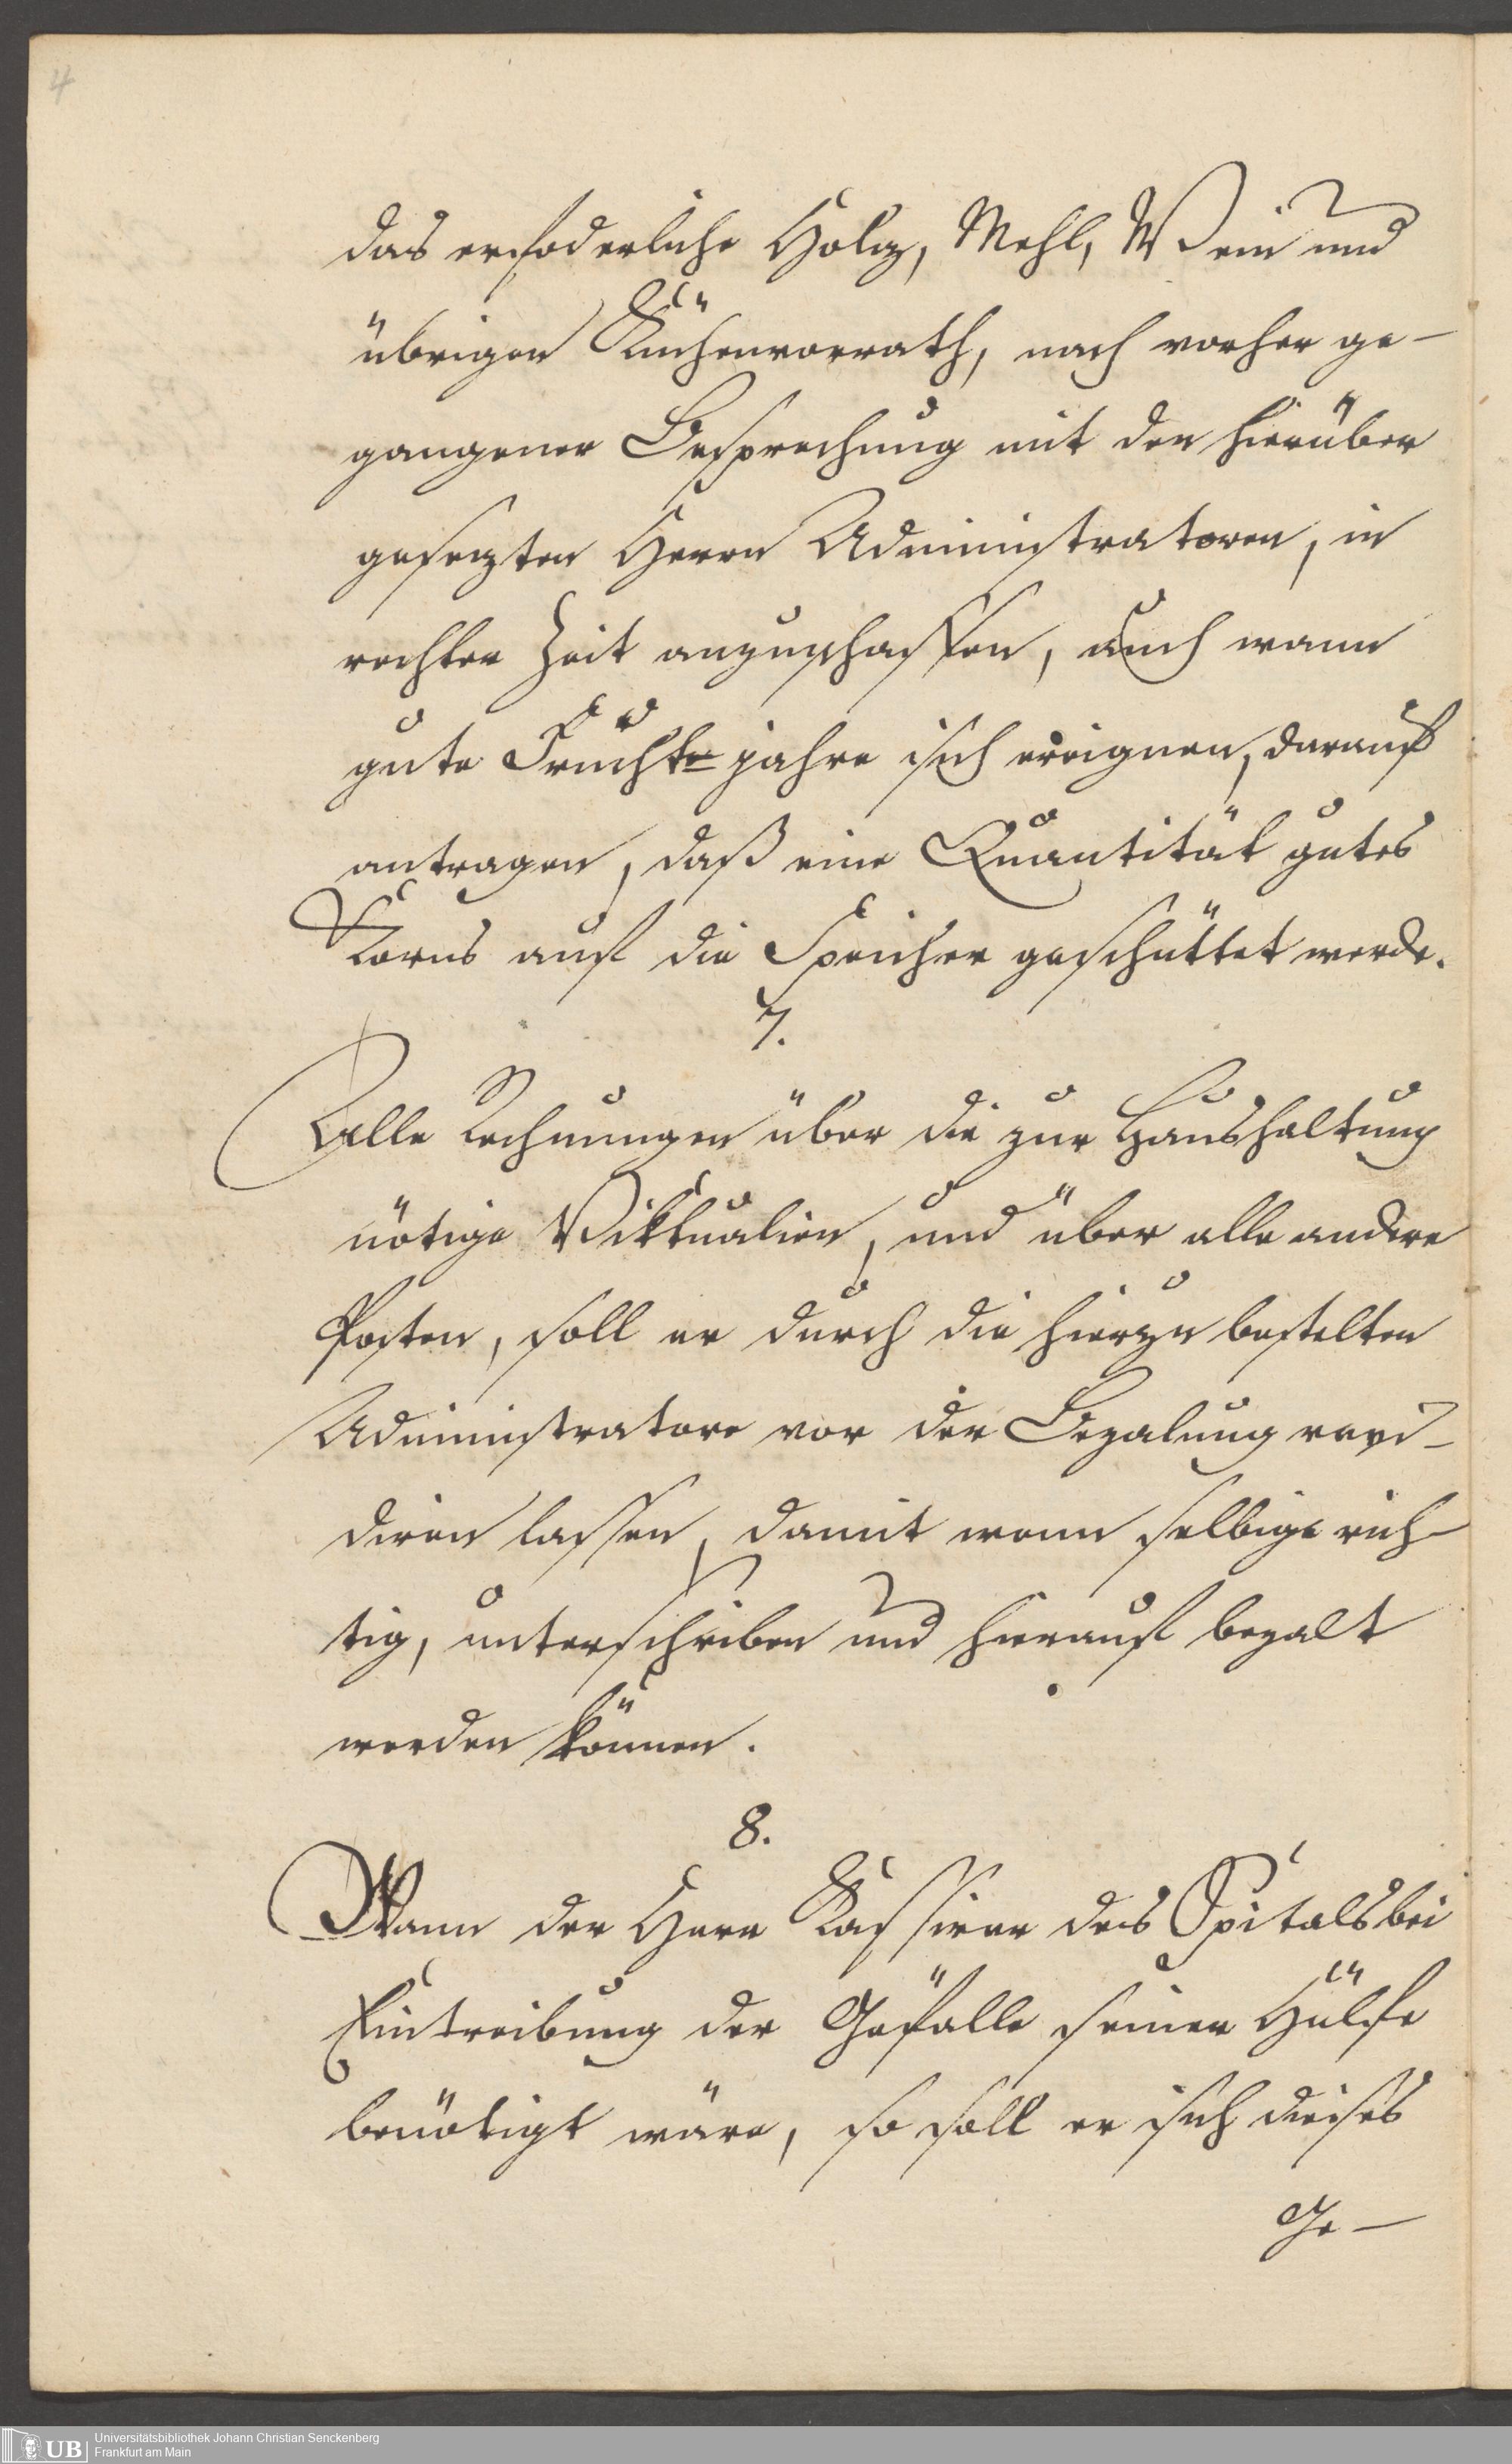 4
das erfoderliche Holz, Mehl, Wein und
übrigen Küchenvorrath, nach vorher ge-
gangener Besprechung mit den hierüber
gesezten Herrn Administratoren, in
rechter Zeit anzuschaffen, auch wann
gute Fruchtejahre sich ereignen, darauf
antragen, daß eine Quantität gutes
Korns auf die Speicher geschüttet werde.
7.
Alle Rechnungen über die zur Haushaltung
nötige Viktualien, und über alle andere
Posten, soll er durch die hierzu bestelten
Administratore vor der Bezalung revi-
diren lassen, damit wenn selbige rich-
tig, unterschriben und hierauf bezalt
werden können.
8.
Wann der Herr Kassirer des Spitals bei
Eintreibung der Gefälle seiner Hülfe
benötigt wäre, so soll er sich dieses
Ge-
UB
Universitätsbibliothek Johann Christian Senckenberg
Frankfurt am Main